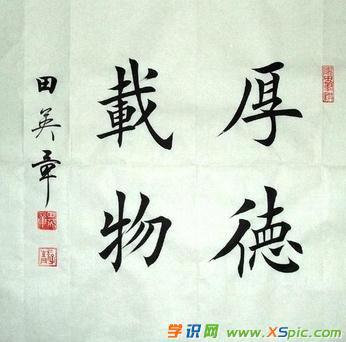 厚德
載物
田英章
学识网 www.XSpic.com